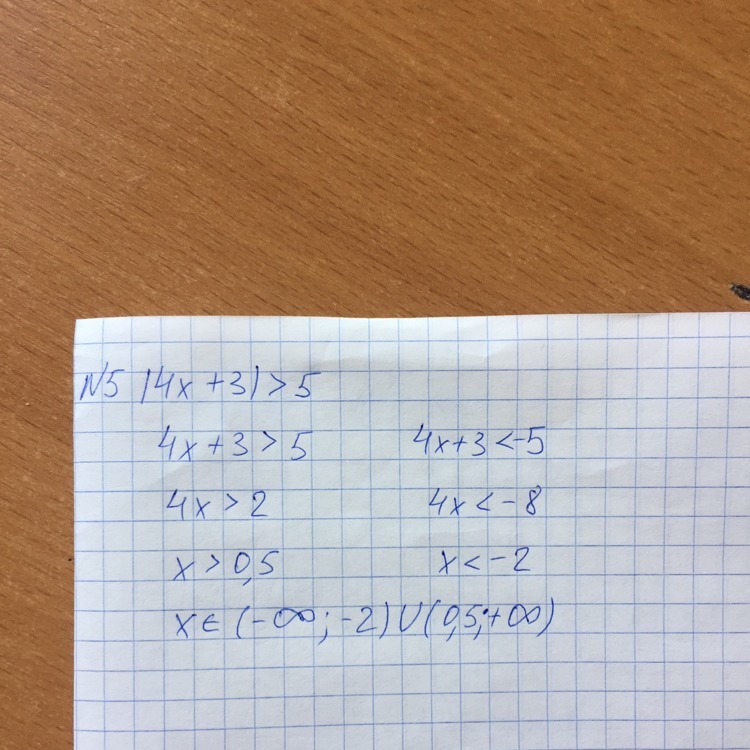 N5 |4x+3|>5
4x+3>5 4x+3<-5
4x>2 4x<-8
x>0,5 x<-2
x∈(-∞;-2)∪(0,5;+∞)